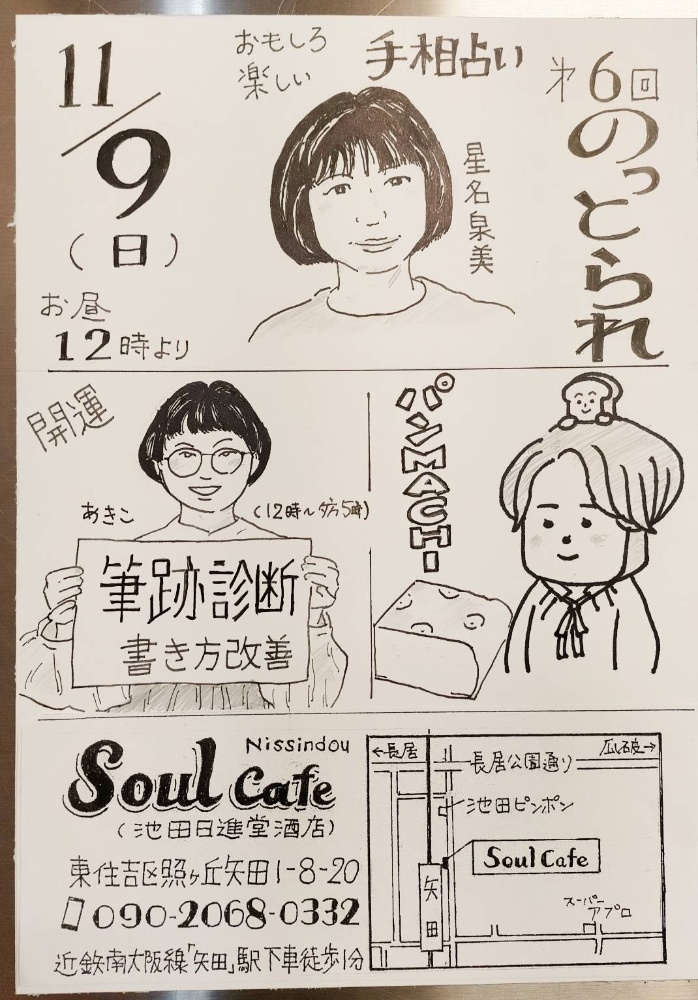 11/9
(日)
お昼
12時より
おもしろ
楽しい
手相占い
星名泉美
第6回
のっとられ
開運
あきこ
(12時〜夕方5時)
筆跡診断
書き方改善
パンMACHI
Nissindou
Soul Cafe
(池田日進堂酒店)
東住吉区照ヶ丘矢田1-8-20
090-2068-0332
近鉄南大阪線「矢田」駅下車徒歩1分
←長居
瓜破→
長居公園通り
池田ピンポン
Soul Cafe
矢田
スーパー
アプロ